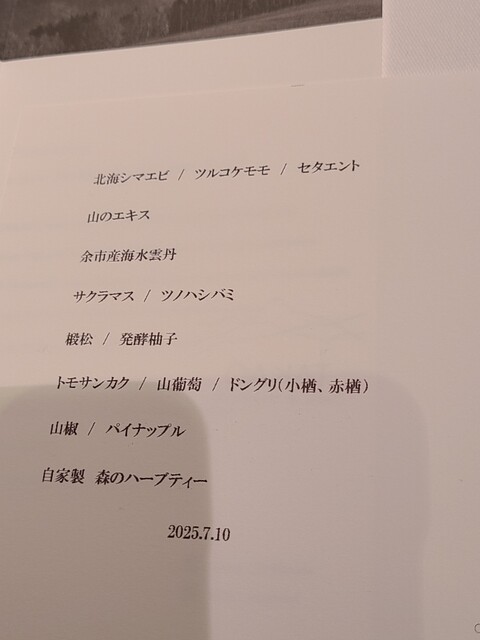 北海シマエビ / ツルコケモモ / セタエント
山のエキス
余市産海水雲丹
サクラマス / ツノハシバミ
椴松 / 発酵柚子
トモサンカク / 山葡萄 / ドングリ(小楢、赤楢)
山椒 / パイナップル
自家製 森のハーブティー
2025.7.10